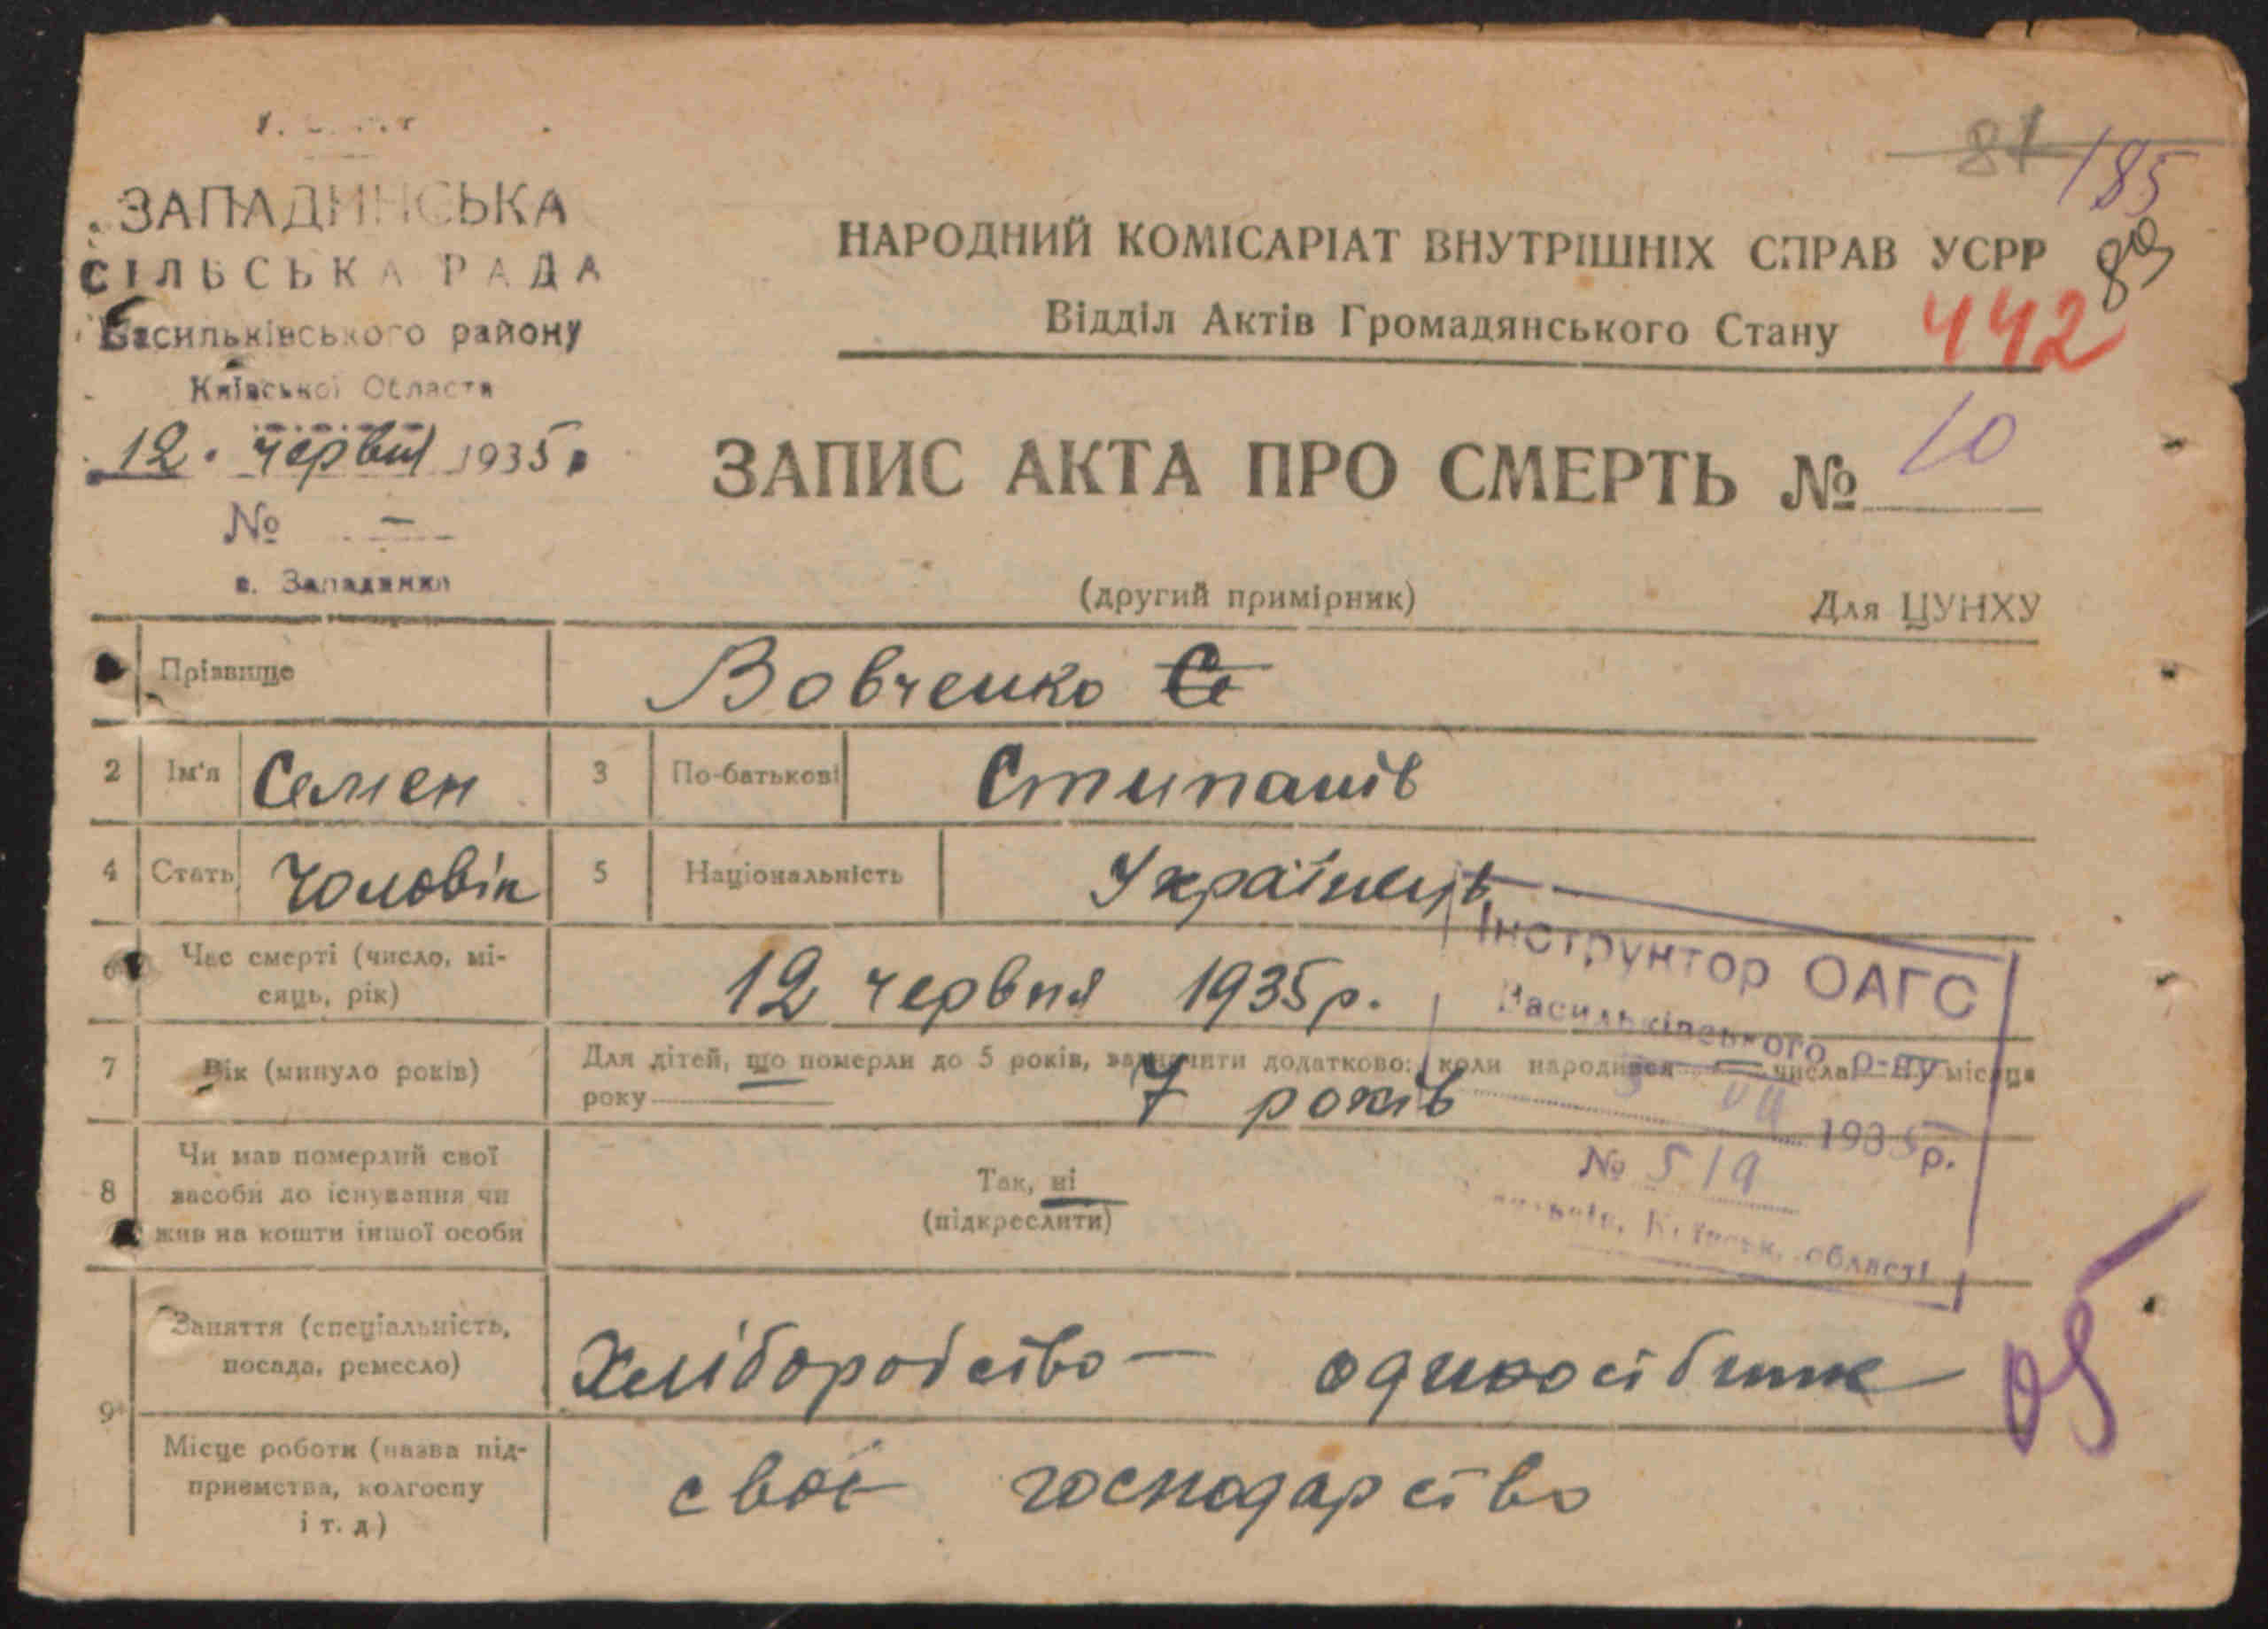 ЗАПАДИНСЬКА
СІЛЬСЬКА РАДА
Васильківського району
Київської Области
12. червня 1935р
№ —
с. Западинка
81 185
89
НАРОДНИЙ КОМІСАРІАТ ВНУТРІШНІХ СПРАВ УСРР
Відділ Актів Громадянського Стану
442
ЗАПИС АКТА ПРО СМЕРТЬ № 10
(другий примірник)
Для ЦУНХУ
Прізвище
Вовченко Се
2 Ім'я Семен 3 По-батькові Стипанів
4 Стать Чоловік 5 Національність Українець
6 Час смерті (число, мі-
сяць, рік)
12 червня 1935р.
7 Вік (минуло років)
Для дітей, що померли до 5 років, зазначити додатково: коли народився — числа — місяця
року —
7 років
Інструктор ОАГС
Васильківського р-ну
1935р.
№ 519
області
8 Чи мав померлий свої
засоби до існування чи
жив на кошти іншої особи
Так, ні
(підкреслити)
9 Заняття (спеціальність,
посада, ремесло)
Хліборобство — одиносібник
05
Місце роботи (назва під-
приємства, колгоспу
і т. д)
своє господарство